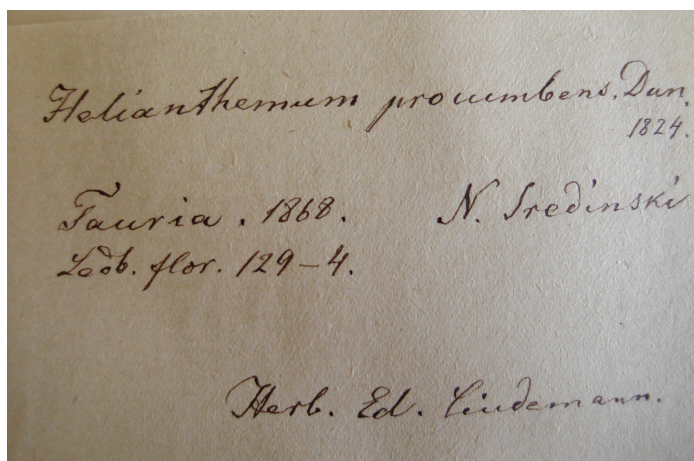 Helianthemum procumbens. Dun.
1824.
Tauria. 1868. N. Sredinski
Ledb. flor. 129-4.
Herb. Ed. Lindemann.